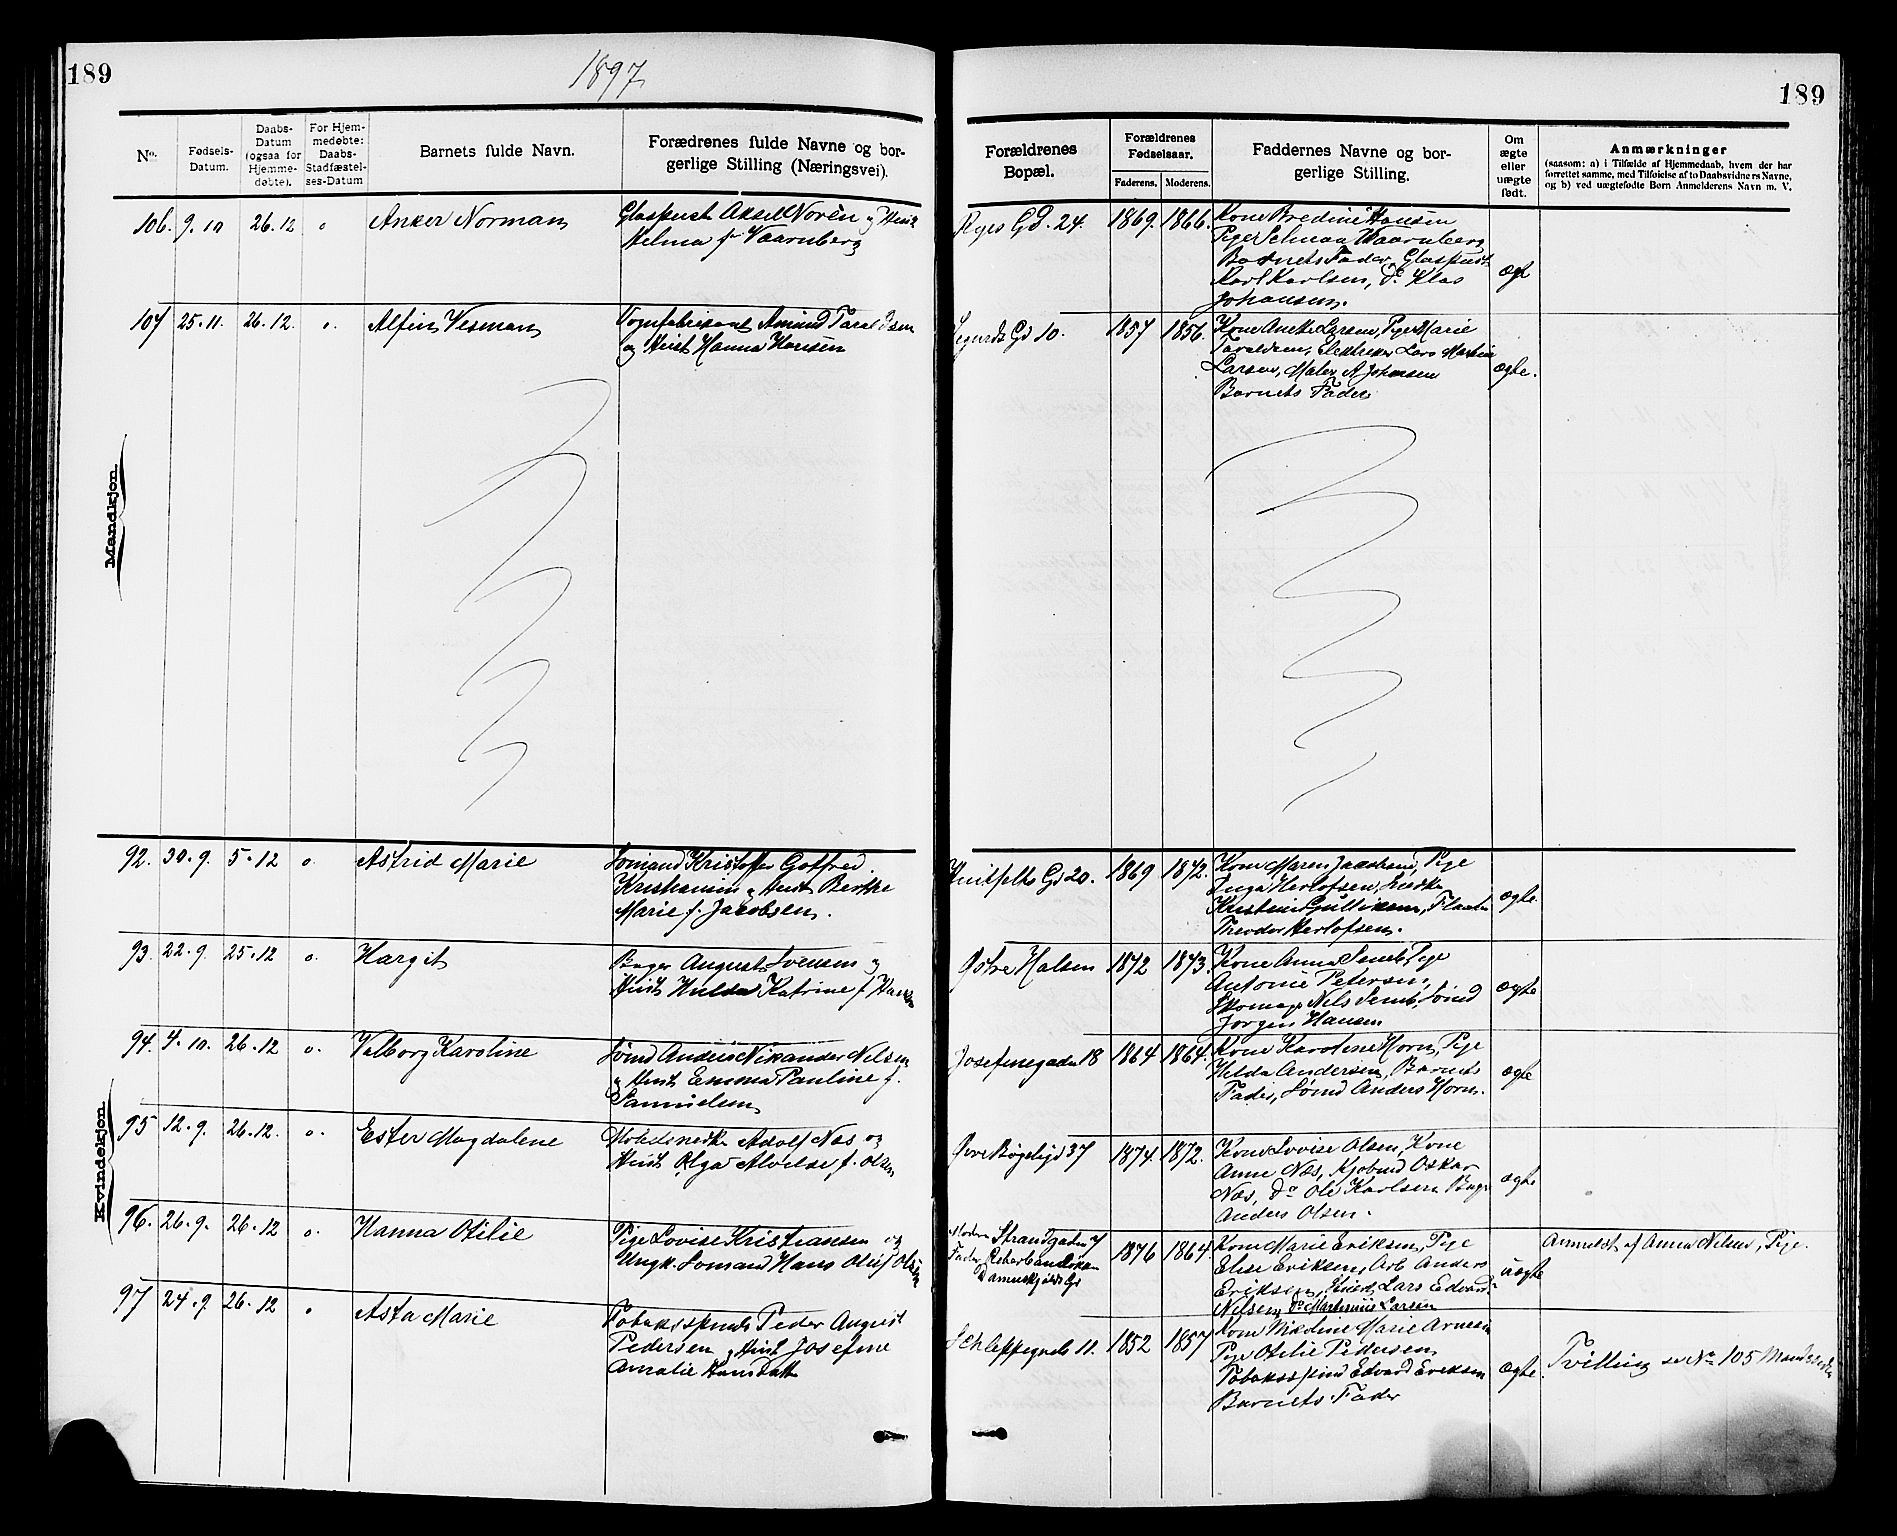 189
1897
189
No.
Fødsels-
Datum.
Daabs-
Datum
(ogsaa for
Hjemme-
døbte).
For Hjem-
medøbte:
Daabs-
Stadfæstel-
ses-Datum
Barnets fulde Navn.
Forædrenes fulde Navne og bor-
gerlige Stilling (Næringsvei).
Forældrenes
Bopæl.
Forældrenes
Fødselsaar.
Faderens. Moderens.
Faddernes Navne og bor-
gerlige Stilling.
Om
ægte
eller
uægte
født.
Anmærkninger
(saasom: a) i Tilfælde af Hjemmedaab, hvem der har
forrettet samme, med Tilføielse af to Daabsvidners Navne,
og b) ved uægtefødte Børn Anmelderens Navn m. V.
Mandkjøn.
106. 9.10 26.12 o Anker Norman
Glaspust Aksel Norén og Hust
Helma f. Vaarnberg
Ryes Gd. 24. 1869. 1866.
Kone Bredine Hansen
Pige Selma Vaarnberg
Barnets Fader, Glaspust
Karl Karlsen, Do Klas
Johansen.
ægt
107 25.11. 26.12. o. Alfin Vesman
Vognfabrikant Amund Taraldsen
og Hust Hanna Hansen
Sigurds Gd 10. 1857 1856.
Kone Anette Larsen, Pige Marie
Taraldsen, Lars Martin
Larsen, Maler A Johansen
Barnets Fader
ægte.
Kvindekjøn.
92. 30.9. 5.12 o. Astrid Marie
Sømand Kristoffer Gotfred
Kristiansen og Hust Berthe
Marie f. Jacobsen.
Huitfelts Gd 20. 1869 1872.
Kone Maren Jacobsen, Pige
Inga Herlofsen, Snedker
Kristian Gulliksen,
Theodor Herlofsen.
ægte.
93. 22.9. 25.12 o. Hargit
Bager August Svensen og
Hust Hulda Katrine f Hansen
Østre Halsen 1872 1873.
Kone Anna Semb, Pige
Antonie Petersen,
Skomag Nils Semb, Sømd
Jørgen Hansen
ægte
94. 4.10. 26.12 o. Valborg Karoline
Sømd Anders Nikander Nilsen
og Hust Emma Pauline f.
Samuelsen
Josefinegaden 18 1864 1864.
Kone Karoline Horn, Pige
Hilda Andersen, Barnets
Fader, Sømd Anders Horn.
ægte
95 12.9. 26.12. o. Ester Magdalene
Adolf Næs og
Hust Olga Alvilde f. Olsen
Øvre Bøgeligd 37 1874. 1872.
Kone Lovise Olsen, Kone
Anne Næs, Oskar
Næs, Do Ole Karlsen Bager
Anders Olsen.
ægte
96. 26.9. 26.12 o. Hanna Otilie
Pige Lovise Kristiansen og
Ungk. Sømand Hans Oluf Olsen
Moderen Strandgaden 7
Fader
Danneskjolds Gd
1876 1864.
Kone Marie Eriksen, Pige
Elise Eriksen, Arb Anders
Eriksen, Lars Edvard
Nilsen Do Martinius Larsen
uægte
Anmeldt af Anna Nilsen, Pige.
97 24.9 26.12 o Asta Marie
Tobaksspinder Peder August
Pedersen og Hust Josefine
Amalie Hansdatter
Schleppegrels 11. 1852 1857
Kone Nikoline Marie Arnesen
Pige Otilie Pedersen
Tobaksspind Edvard Eriksen
Barnets Fader
ægte.
Tvilling se No 105 Mandkjøn